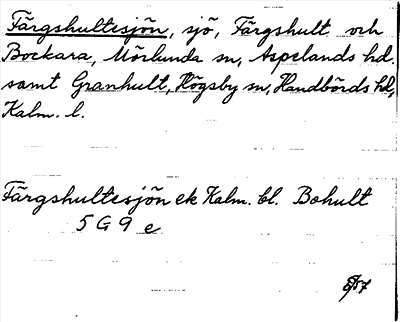 Färgshultesjön, sjö, Färgshult och
Bockara, Mörlunda sn, Aspelands hd.
samt Granhult, Högsby sn, Handbörds hd,
Kalm. l.
Färgshultesjön ek Kalm. bl. Bohult
5 G 9 e